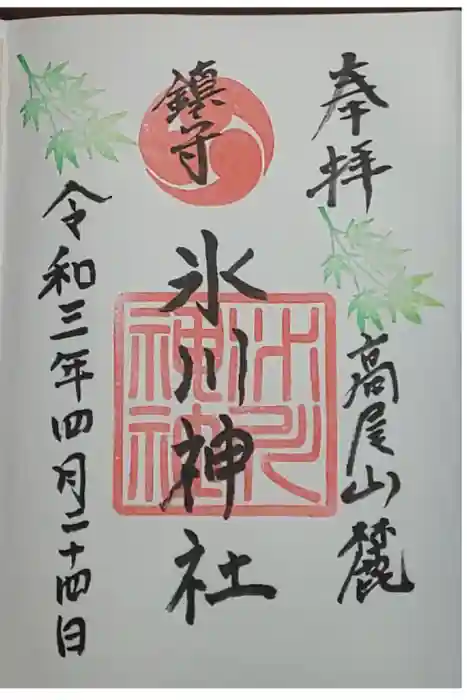 奉拝
高尾山麓
鎮守
氷川神社
氷川
神社
令和三年四月二十四日